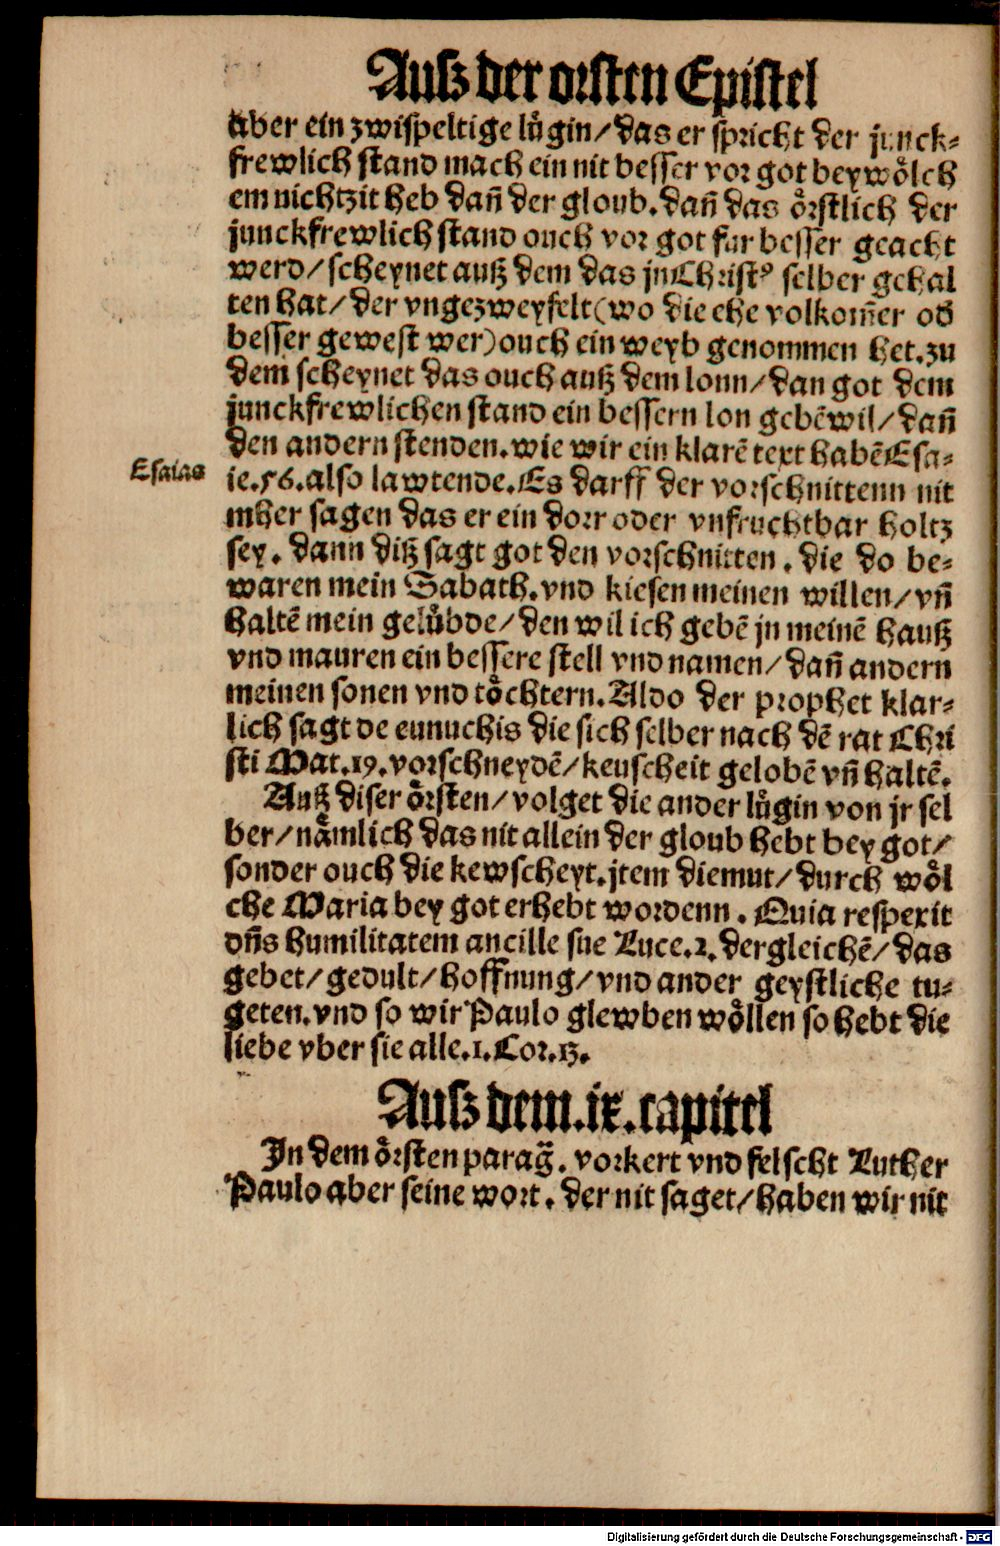 Auſz der orſten Epiſtel
aͤber ein zwiſpeltige luͤgin/das er ſpricht der junck⸗
frewlich ſtand mach ein nit beſſer vor got bey woͤlch
em nichtzit heb dañ der gloub.dañ das oͤrſtlich der
junckfrewlich ſtand ouch vor got fur beſſer geacht
werd/ſcheynet auß dem das jn Chriſtꝰ ſelber gehal
ten hat/der vngezweyfelt(wo die ehe volkom̃er od̕
beſſer geweſt wer)ouch ein weyb genommen het.zu
dem ſcheynet das ouch auß dem lonn/dan got dem
junckfrewlichen ſtand ein beſſern lon gebē wil/dañ
den andern ſtenden.wie wir ein klarē text habē Eſa⸗
Eſaias
ie.56.alſo lawtende.Es darff der vorſchnittenn nit
mher ſagen das er ein dorr oder vnfruchtbar holtz
ſey. dann diß ſagt got den vorſchnitten. die do be⸗
waren mein Sabath.vnd kieſen meinen willen/vñ
haltē mein geluͤbde/den wil ich gebē jn meinē hauß
vnd mauren ein beſſere ſtell vnd namen/dañ andern
meinen ſonen vnd toͤchtern.Aldo der prophet klar⸗
lich ſagt de eunuchis die ſich ſelber nach dē rat Chri
ſti Mat.19.vorſchneydē/keuſcheit gelobē vñ haltē.
Auß diſer oͤrſten/volget die ander luͤgin von jr ſel
ber/naͤmlich das nit allein der gloub hebt bey got/
ſonder ouch die kewſcheyt.jtem diemut/durch woͤl
che Maria bey got erhebt wordenn. Quia reſpexit
dñs humilitatem ancille ſue Luce.2.dergleichē/das
gebet/gedult/hoffnung/vnd ander geyſtliche tu⸗
geten.vnd ſo wir Paulo glewben woͤllen ſo hebt die
liebe vber ſie alle.1.Cor.13.
Auſz dem.ix.capitel
In dem oͤrſten parag̃. vorkert vnd felſcht Luther
Paulo aber ſeine wort. der nit ſaget/haben wir nit
Digitalisierung gefördert durch die Deutsche Forschungsgemeinschaft - DFG